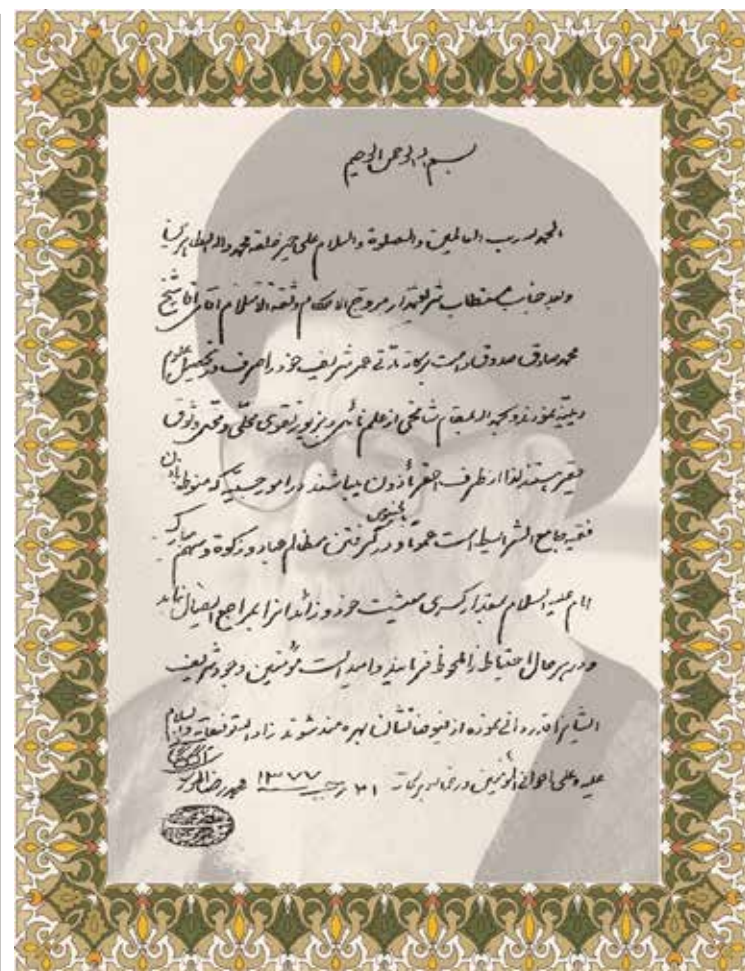 بسم الله الرحمن الرحیم
الحمد لله رب العالمین والصلوة والسلام علی خیر خلقه محمد وآله الطاهرین
وبعد جناب مستطاب شریعتمدار مروج الاحکام وثقة الاسلام آقای آقا شیخ
محمد صادق است برکاته مدتی عمر شریف خود را صرف در تحصیل علوم
دینیه نموده و بحمد الله بمقام شامخی از علم نائل و بزیور تقوی محلی و وثوق
حقیر هستند لذا از طرف احقر مأذون میباشند در امور حسبیه که منوط باذن
فقیه جامع الشرایط است عموما و در گرفتن مظالم عباد و زکوة و سهم مبارک
بخصوص
امام علیه السلام بمقدار کسری معیشت خود و زائد آنرا بمراجع ایصال نماید
و در هر حال احتیاط را ملحوظ فرمایند و امید است مؤمنین وجود شریف
ایشان را قدردانی نموده از فیوضاتشان بهره مند شوند زاد الله توفیقاته والسلام
علیه وعلی اخواننا المؤمنین ورحمة الله وبرکاته ۲۱ رجب ۱۳۷۷ محمد رضا